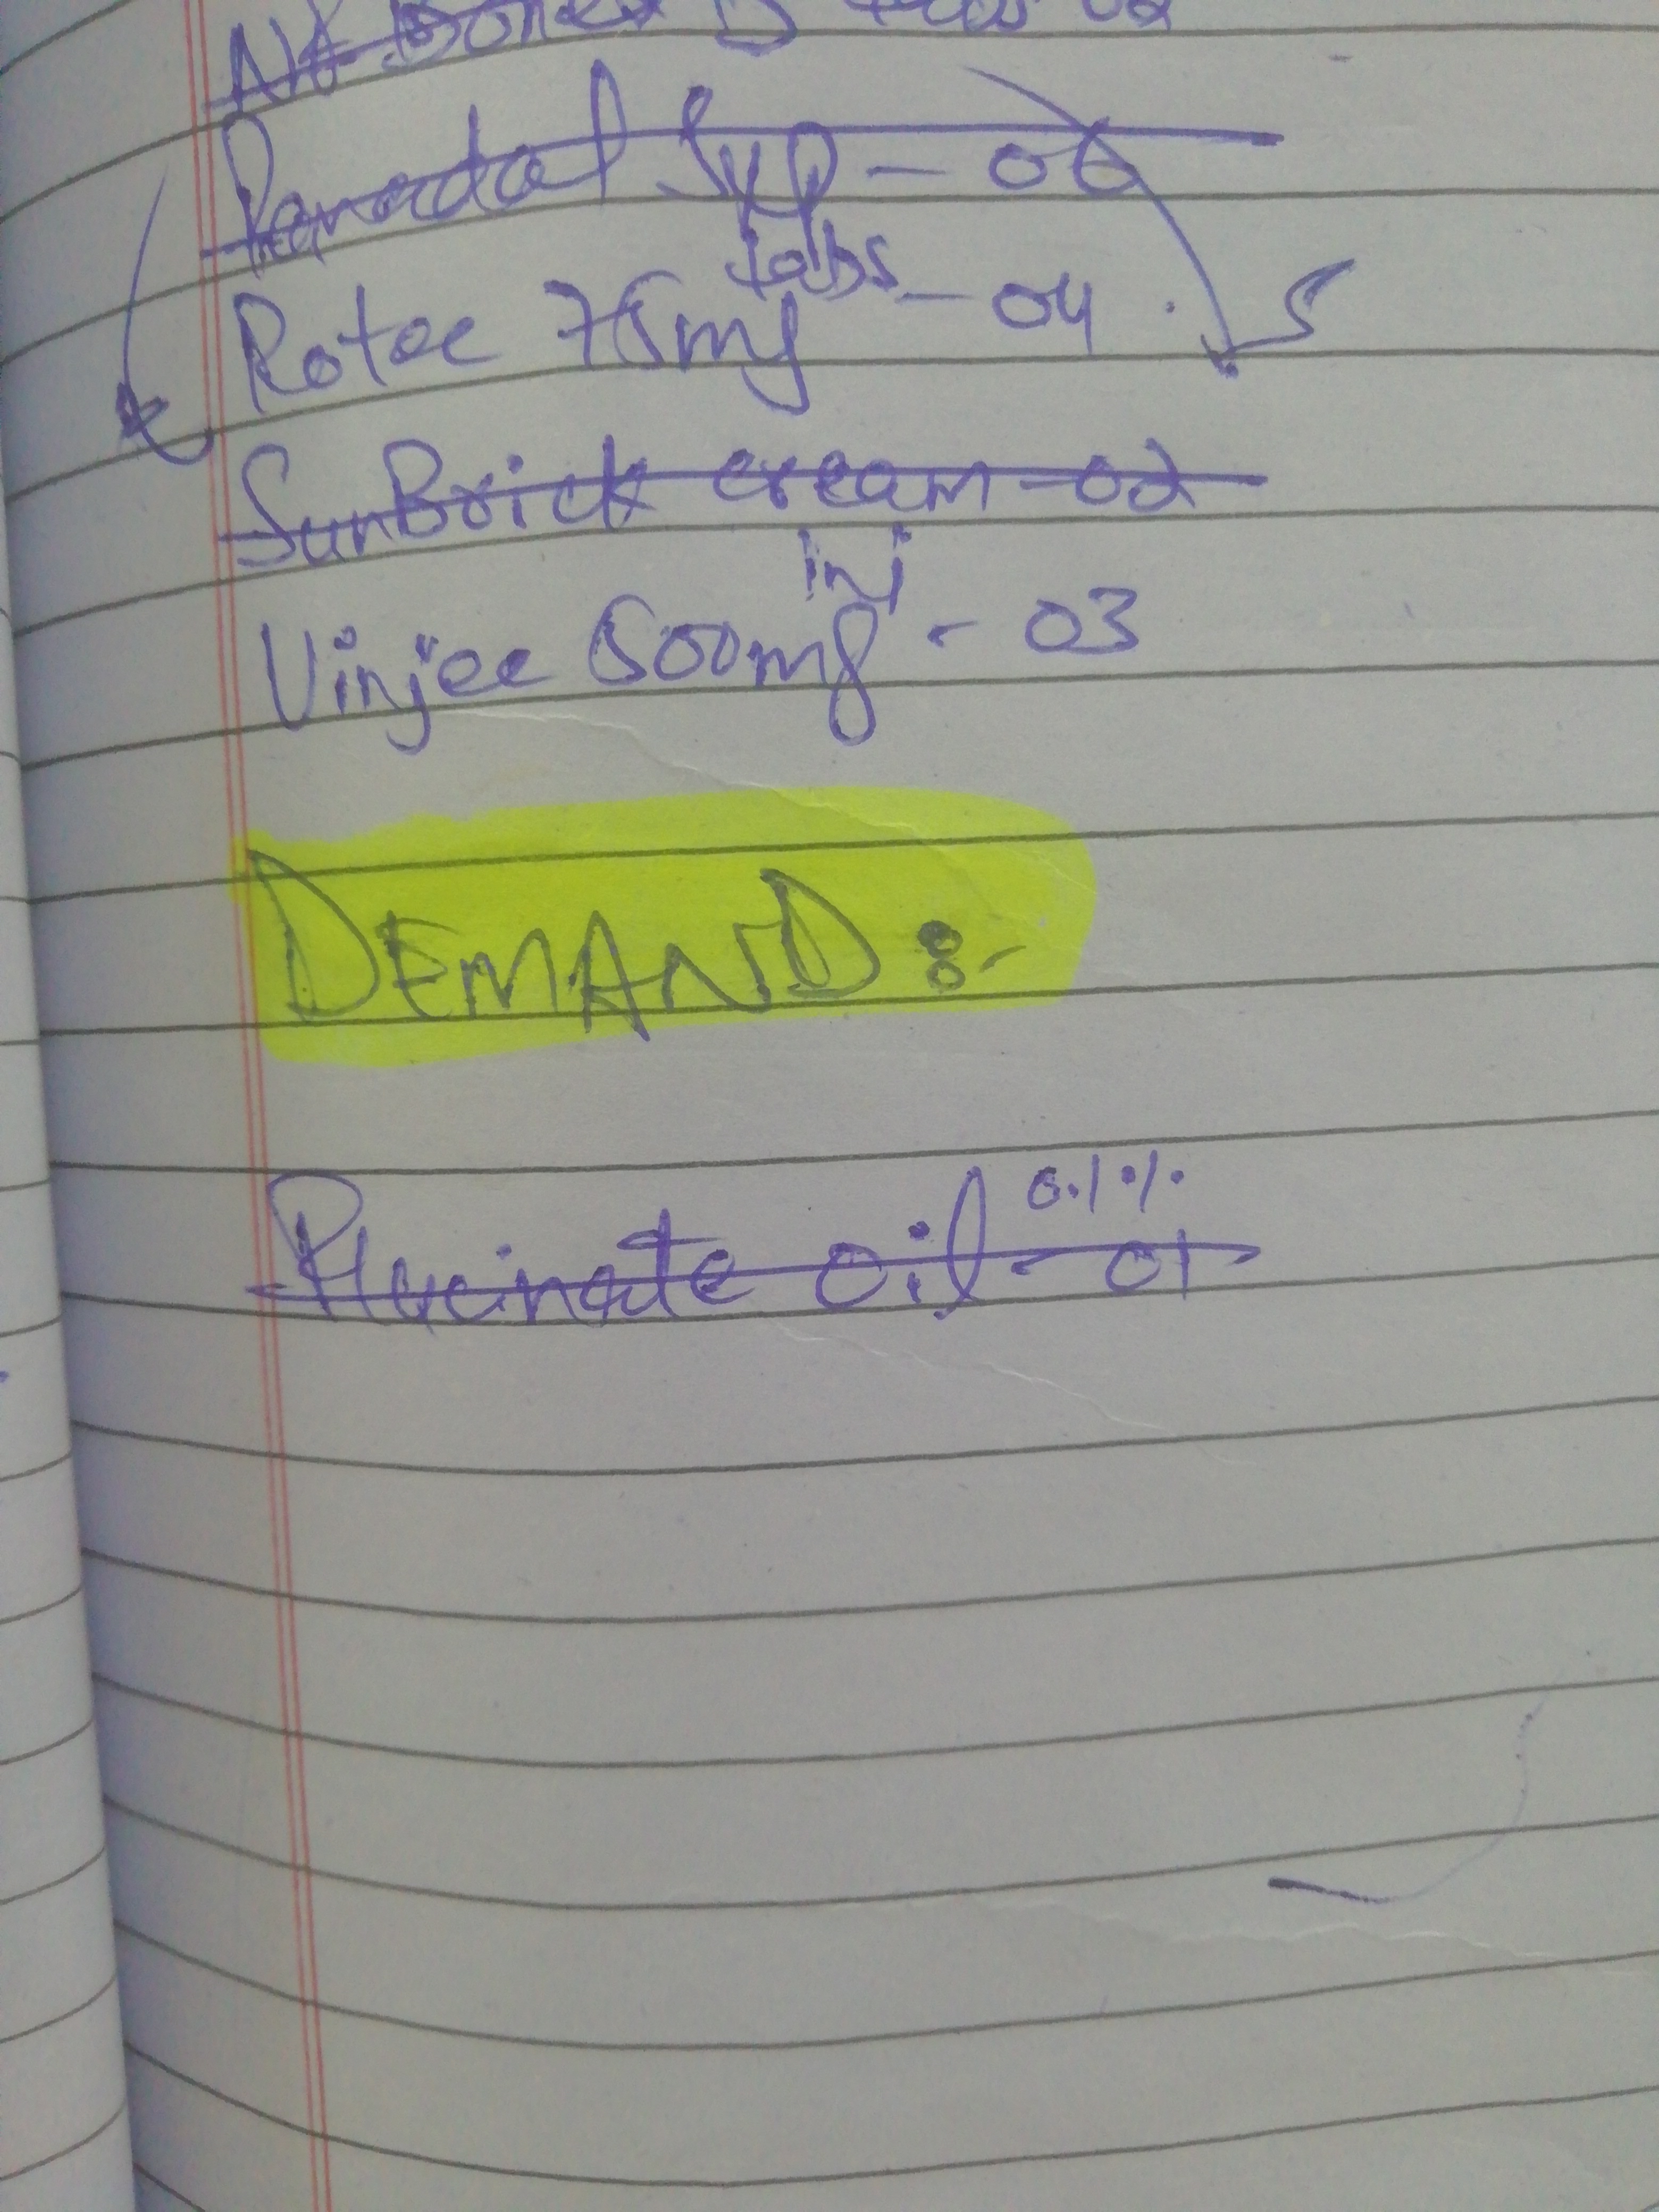 Panadol Syp - 06
Rotec 75mg tabs - 04
SunBrick cream - 02
Vinjec 500mg inj - 03
DEMAND :-
oil 0.1% - 01